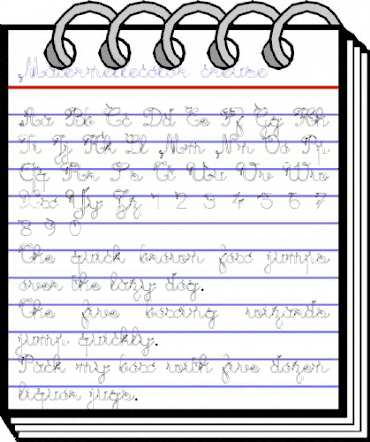 Maternellecolor creuse
Aa Bb Cc Dd Ee Ff Gg Hh
Ii Jj Kk Ll Mm Nn Oo Pp
Qq Rr Ss Tt Uu Vv Ww
Xx Yy Zz 1 2 3 4 5 6 7
8 9 0
The quick brown fox jumps
over the lazy dog.
The five boxing wizards
jump quickly.
Pack my box with five dozen
liquor jugs.